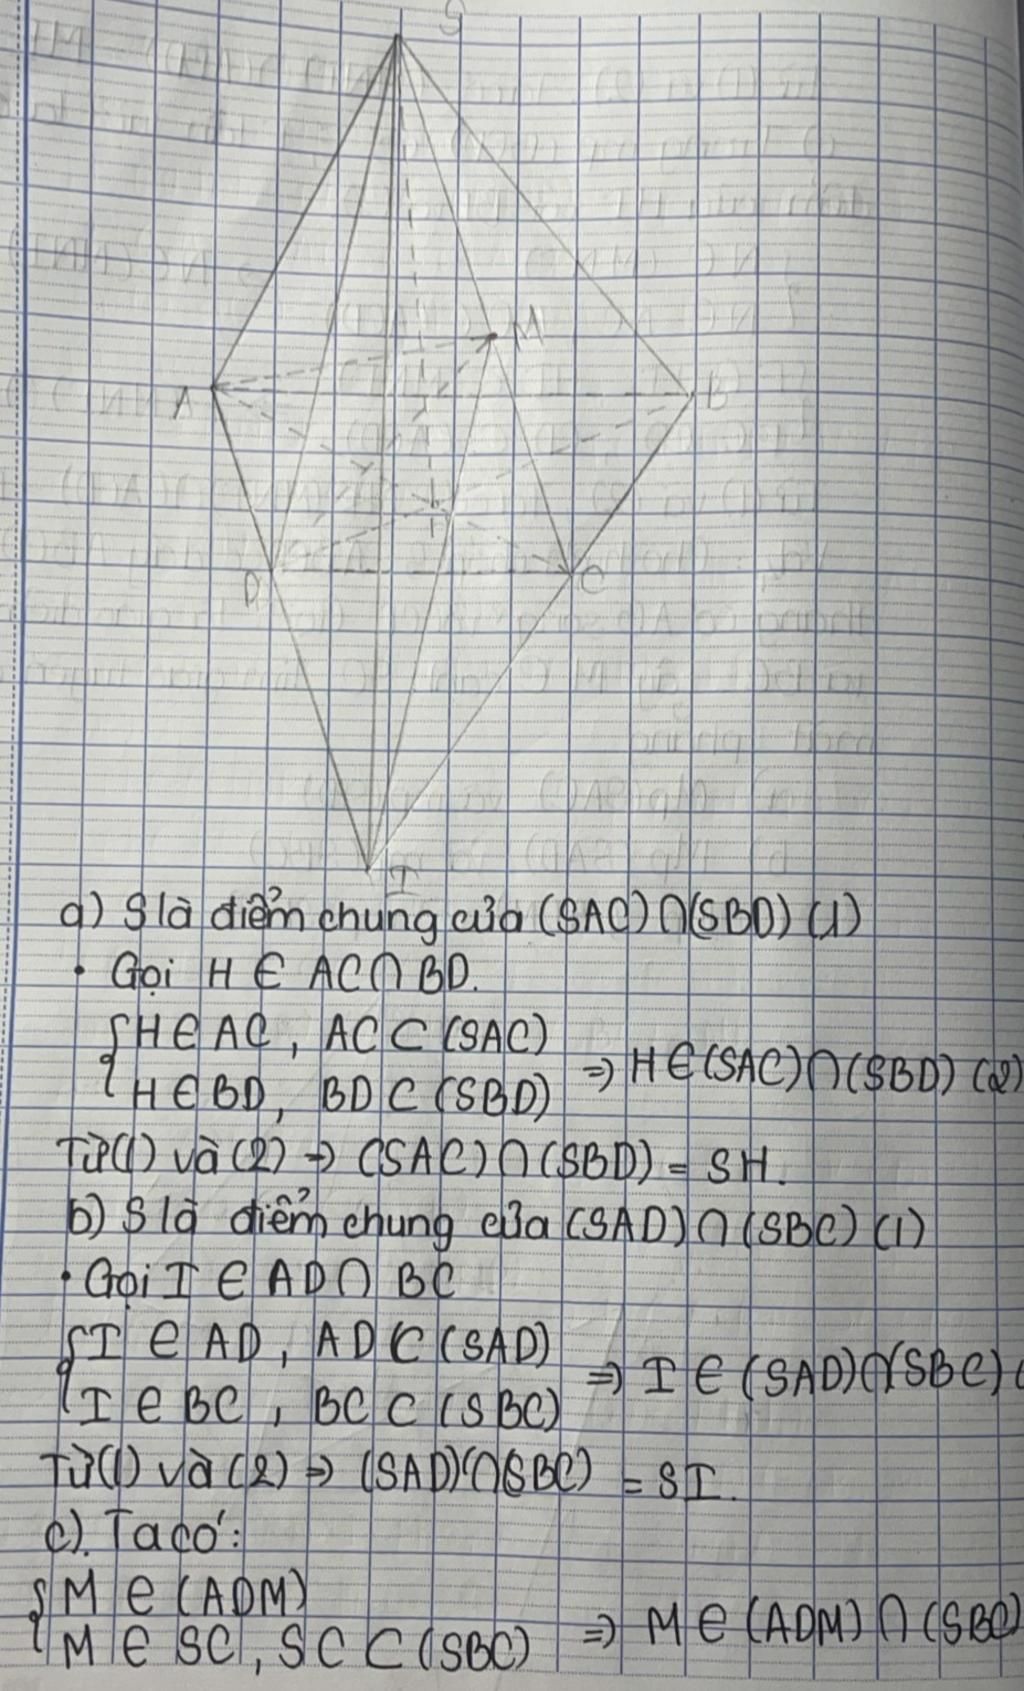 S
M
A
B
H
D
C
I
a) S là điểm chung của (SAC) ∩ (SBD) (1)
• Gọi H ∈ AC ∩ BD.
{ H ∈ AC, AC ⊂ (SAC)
{ H ∈ BD, BD ⊂ (SBD) ⇒ H ∈ (SAC) ∩ (SBD) (2)
Từ (1) và (2) ⇒ (SAC) ∩ (SBD) = SH.
b) S là điểm chung của (SAD) ∩ (SBC) (1)
• Gọi I ∈ AD ∩ BC
{ I ∈ AD, AD ⊂ (SAD)
{ I ∈ BC, BC ⊂ (SBC) ⇒ I ∈ (SAD) ∩ (SBC) (
Từ (1) và (2) ⇒ (SAD) ∩ (SBC) = SI.
c). Ta có:
{ M ∈ (ADM)
{ M ∈ SC, SC ⊂ (SBC) ⇒ M ∈ (ADM) ∩ (SBC)